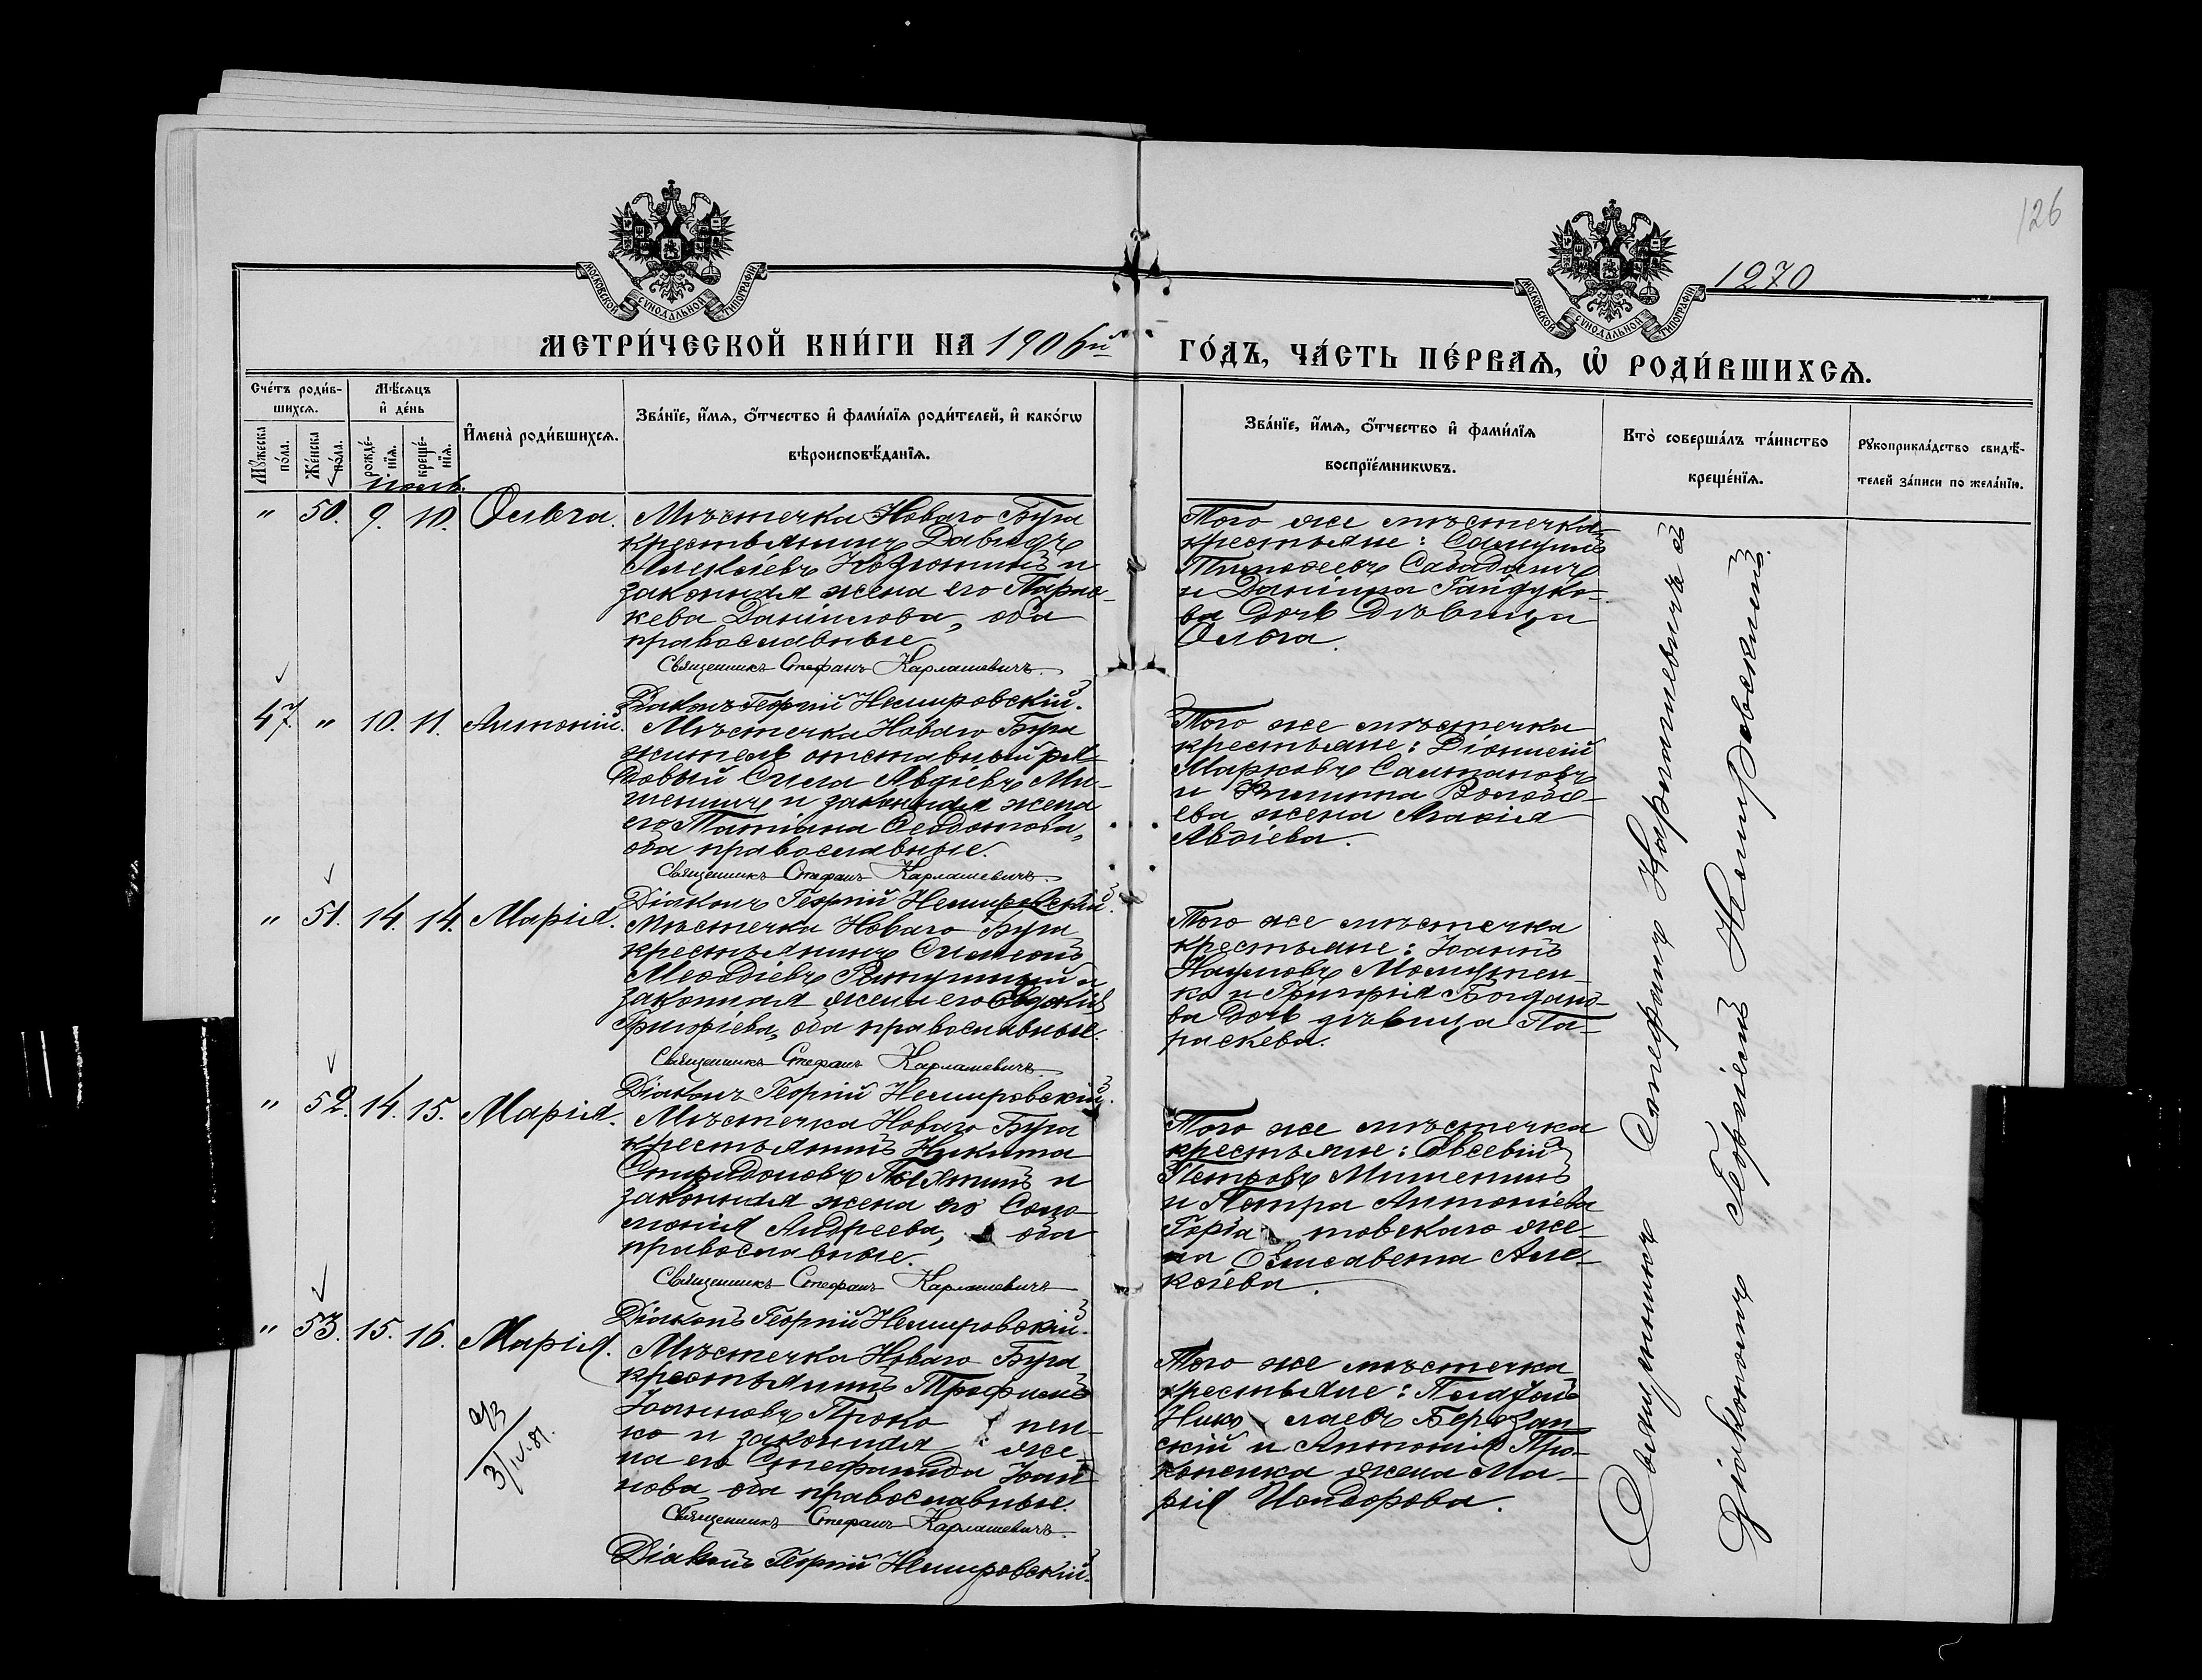 126
1270
МОСКОВСКОЙ СѴНОДАЛЬНОЙ ТИПОГРАФІИ
МОСКОВСКОЙ СѴНОДАЛЬНОЙ ТИПОГРАФІИ
МЕТРИ́ЧЕСКОЙ КНИ́ГИ НА 1906й ГО́ДЪ, ЧА́СТЬ ПЕ́РВАЯ, Ѡ҆ РОДИ́ВШИХСѦ.
Сче́тъ роди́в-
шихсѧ.
Мѣ́сѧцъ
и҆ де́нь
Мꙋ́жеска
по́ла.
Же́нска
по́ла.
рожде́-
нїѧ.
креще́-
нїѧ.
И҆мена̀ роди́вшихсѧ.
Зва́нїе, и҆́мѧ, ѻ҆́тчество и҆ фами́лїѧ роди́телей, и҆ како́гѡ
вѣроисповѣ́данїѧ.
Зва́нїе, и҆́мѧ, ѻ҆́тчество и҆ фами́лїѧ
воспрїе́мникѡвъ.
Кто̀ соверша́лъ та́инство
креще́нїѧ.
Рꙋкоприкла́дство свидѣ́-
телей за́писи по жела́нїю.
" 50. 9. 10. Ольга.
Мѣстечка Новаго Буга
крестьянинъ Давидъ
Алексіевъ и
законная жена его Парас-
кева Даніилова, оба
православные
Священникъ Стефанъ Карлашевичъ.
Діаконъ Георгій Немировскій.
Того же мѣстечка
крестьяне: Самуилъ
Тимоѳеевъ
и Даніила Гайдуко-
ва дочь дѣвица
Ольга.
47. " 10. 11. Антоній.
Мѣстечка Новаго Буга
житель отставный ря-
довый Сила Авдіевъ Ми-
и законная жена
его Татіана
оба православные.
Священникъ Стефанъ Карлашевичъ.
Діаконъ Георгій Немировскій.
Того же мѣстечка
крестьяне: Діонисій
Марковъ Салтановъ
и Филиппа
ева жена Марія
Авдіева.
" 51. 14. 14. Марія.
Мѣстечка Новаго Буга
крестьянинъ Симеонъ
и
законная жена его Евдокія
Григоріева, оба православные.
Священникъ Стефанъ Карлашевичъ.
Діаконъ Георгій Немировскій.
Того же мѣстечка
крестьяне: Іоаннъ
Наумовъ
ко и Григорія Богдано-
ва дочь дѣвица Па-
раскева.
" 52. 14. 15. Марія.
Мѣстечка Новаго Буга
крестьянинъ Никита
Спиридоновъ и
законная жена его Соло-
монія Андреева, оба
православные.
Священникъ Стефанъ Карлашевичъ
Діаконъ Георгій Немировскій.
Того же мѣстечка
крестьяне: Евсевій
Петровъ Мишенинъ
и Петра Антоніева
товскаго же-
на Елисавета Але-
ксіева.
" 53. 15. 16. Марія.
Мѣстечка Новаго Буга
крестьянинъ Трофимъ
Іоанновъ Проко пен-
ко и законная же-
на его Стефанида Іоан-
нова оба православные.
Священникъ Стефанъ Карлашевичъ.
Діаконъ Георгій Немировскій.
Того же мѣстечка
крестьяне:
Нико лаевъ Березан-
скій и Антонія Про-
копенка жена Ма-
рія
Священникъ Стефанъ Карлашевичъ съ
Діакономъ Георгіемъ Немировскимъ.